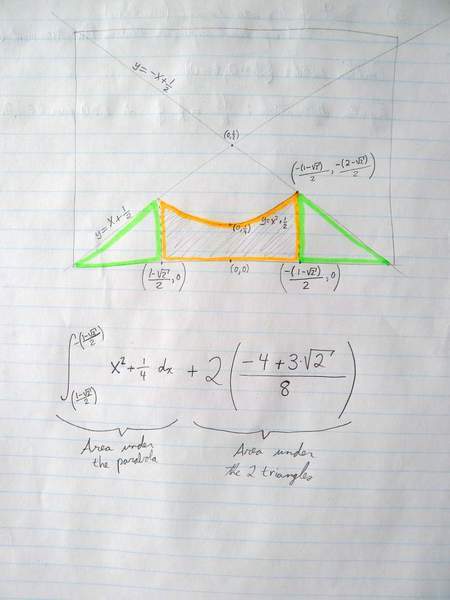 y = -x + 1/2
(0, 1/2)
(-(1-√2)/2, -(2-√2)/2)
y = x + 1/2
(0, 1/4)
((1-√2)/2, 0)
(0, 0)
(-(1-√2)/2, 0)
∫_{((1-√2)/2)}^{-((1-√2)/2)} x² + 1/4 dx + 2((-4 + 3·√2)/8)
Area under
the parabola
Area under
the 2 triangles